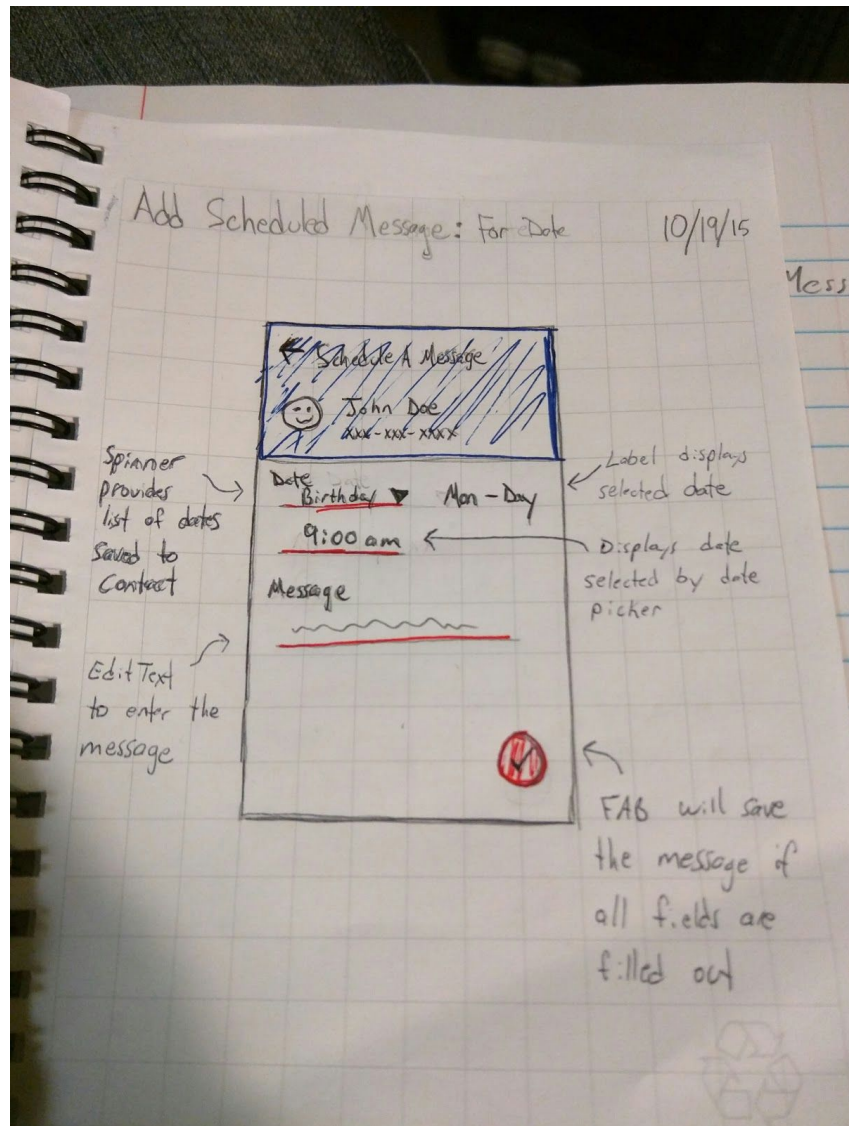 Add Scheduled Message: For Date
10/19/15
Mess
Schedule A Message
John Doe
xxx-xxx-xxxx
Spinner
provides
list of dates
saved to
Contact
Date
Birthday ▼ Mon-Day
9:00 am
Message
Label displays
selected date
Displays date
selected by date
picker
Edit Text
to enter the
message
FAB will save
the message if
all fields are
filled out